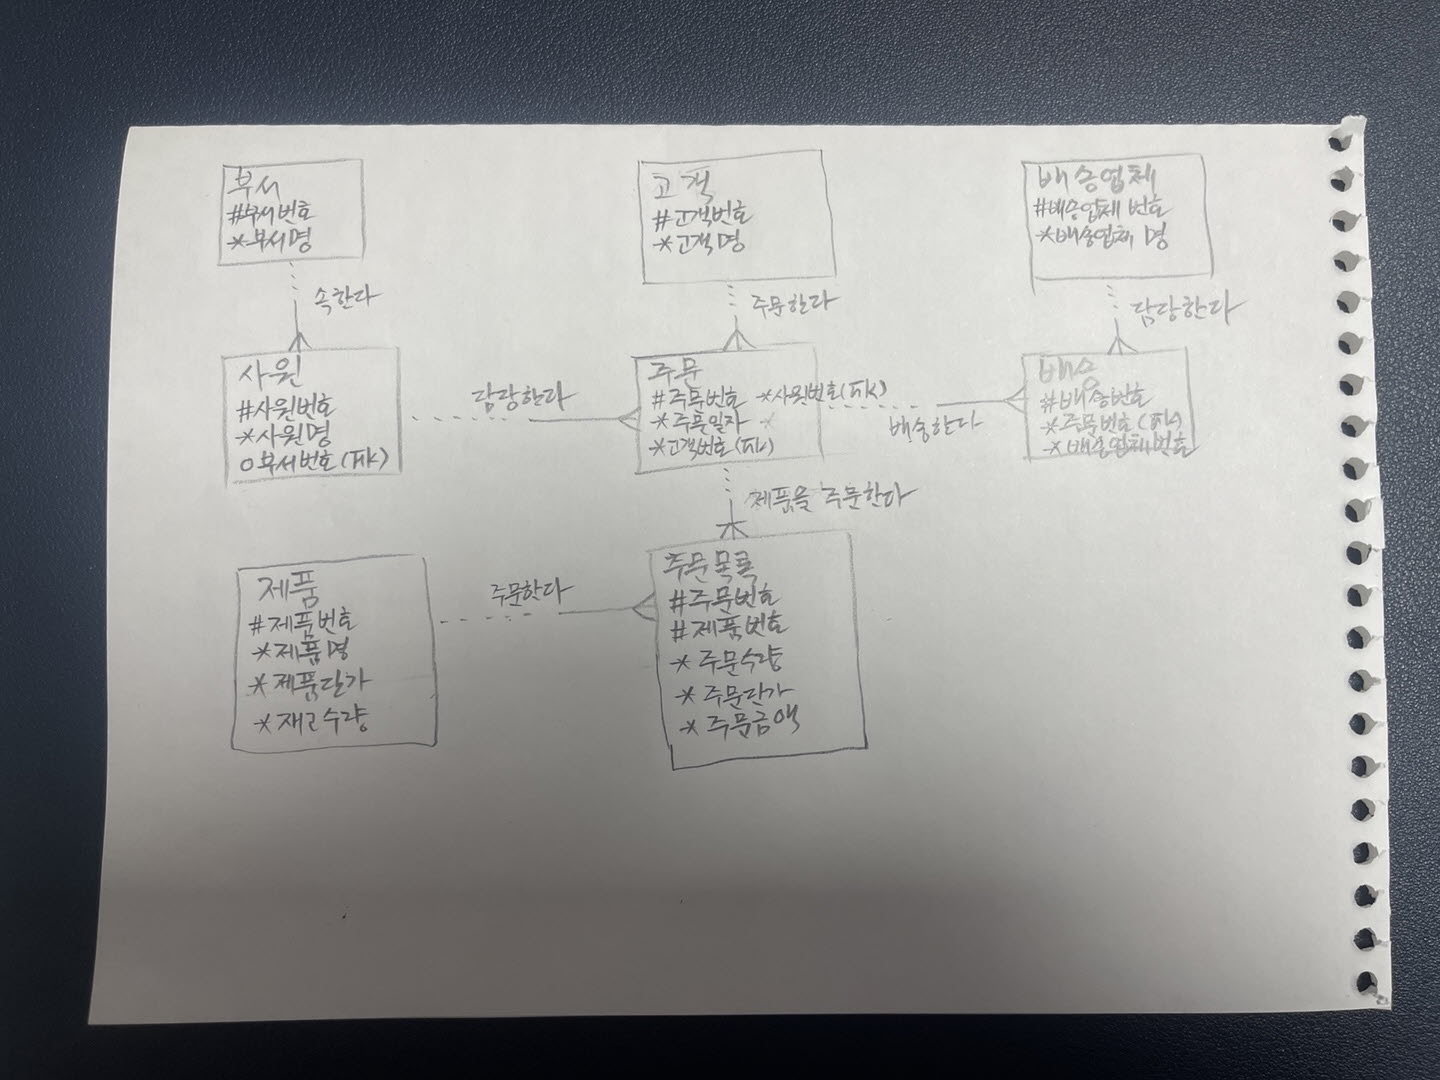 부서
#부서번호
*부서명
속한다
고객
#고객번호
*고객명
주문한다
배송업체
#배송업체 번호
*배송업체 명
담당한다
사원
#사원번호
*사원명
o부서번호(FK)
담당한다
주문
#주문번호 *사원번호(FK)
*주문일자 *
*고객번호(FK)
배송한다
배송
#배송번호
*주문번호(FK)
*배송업체번호
제품을 주문한다
제품
#제품번호
*제품명
*제품단가
*재고수량
주문한다
주문목록
#주문번호
#제품번호
*주문수량
*주문단가
*주문금액